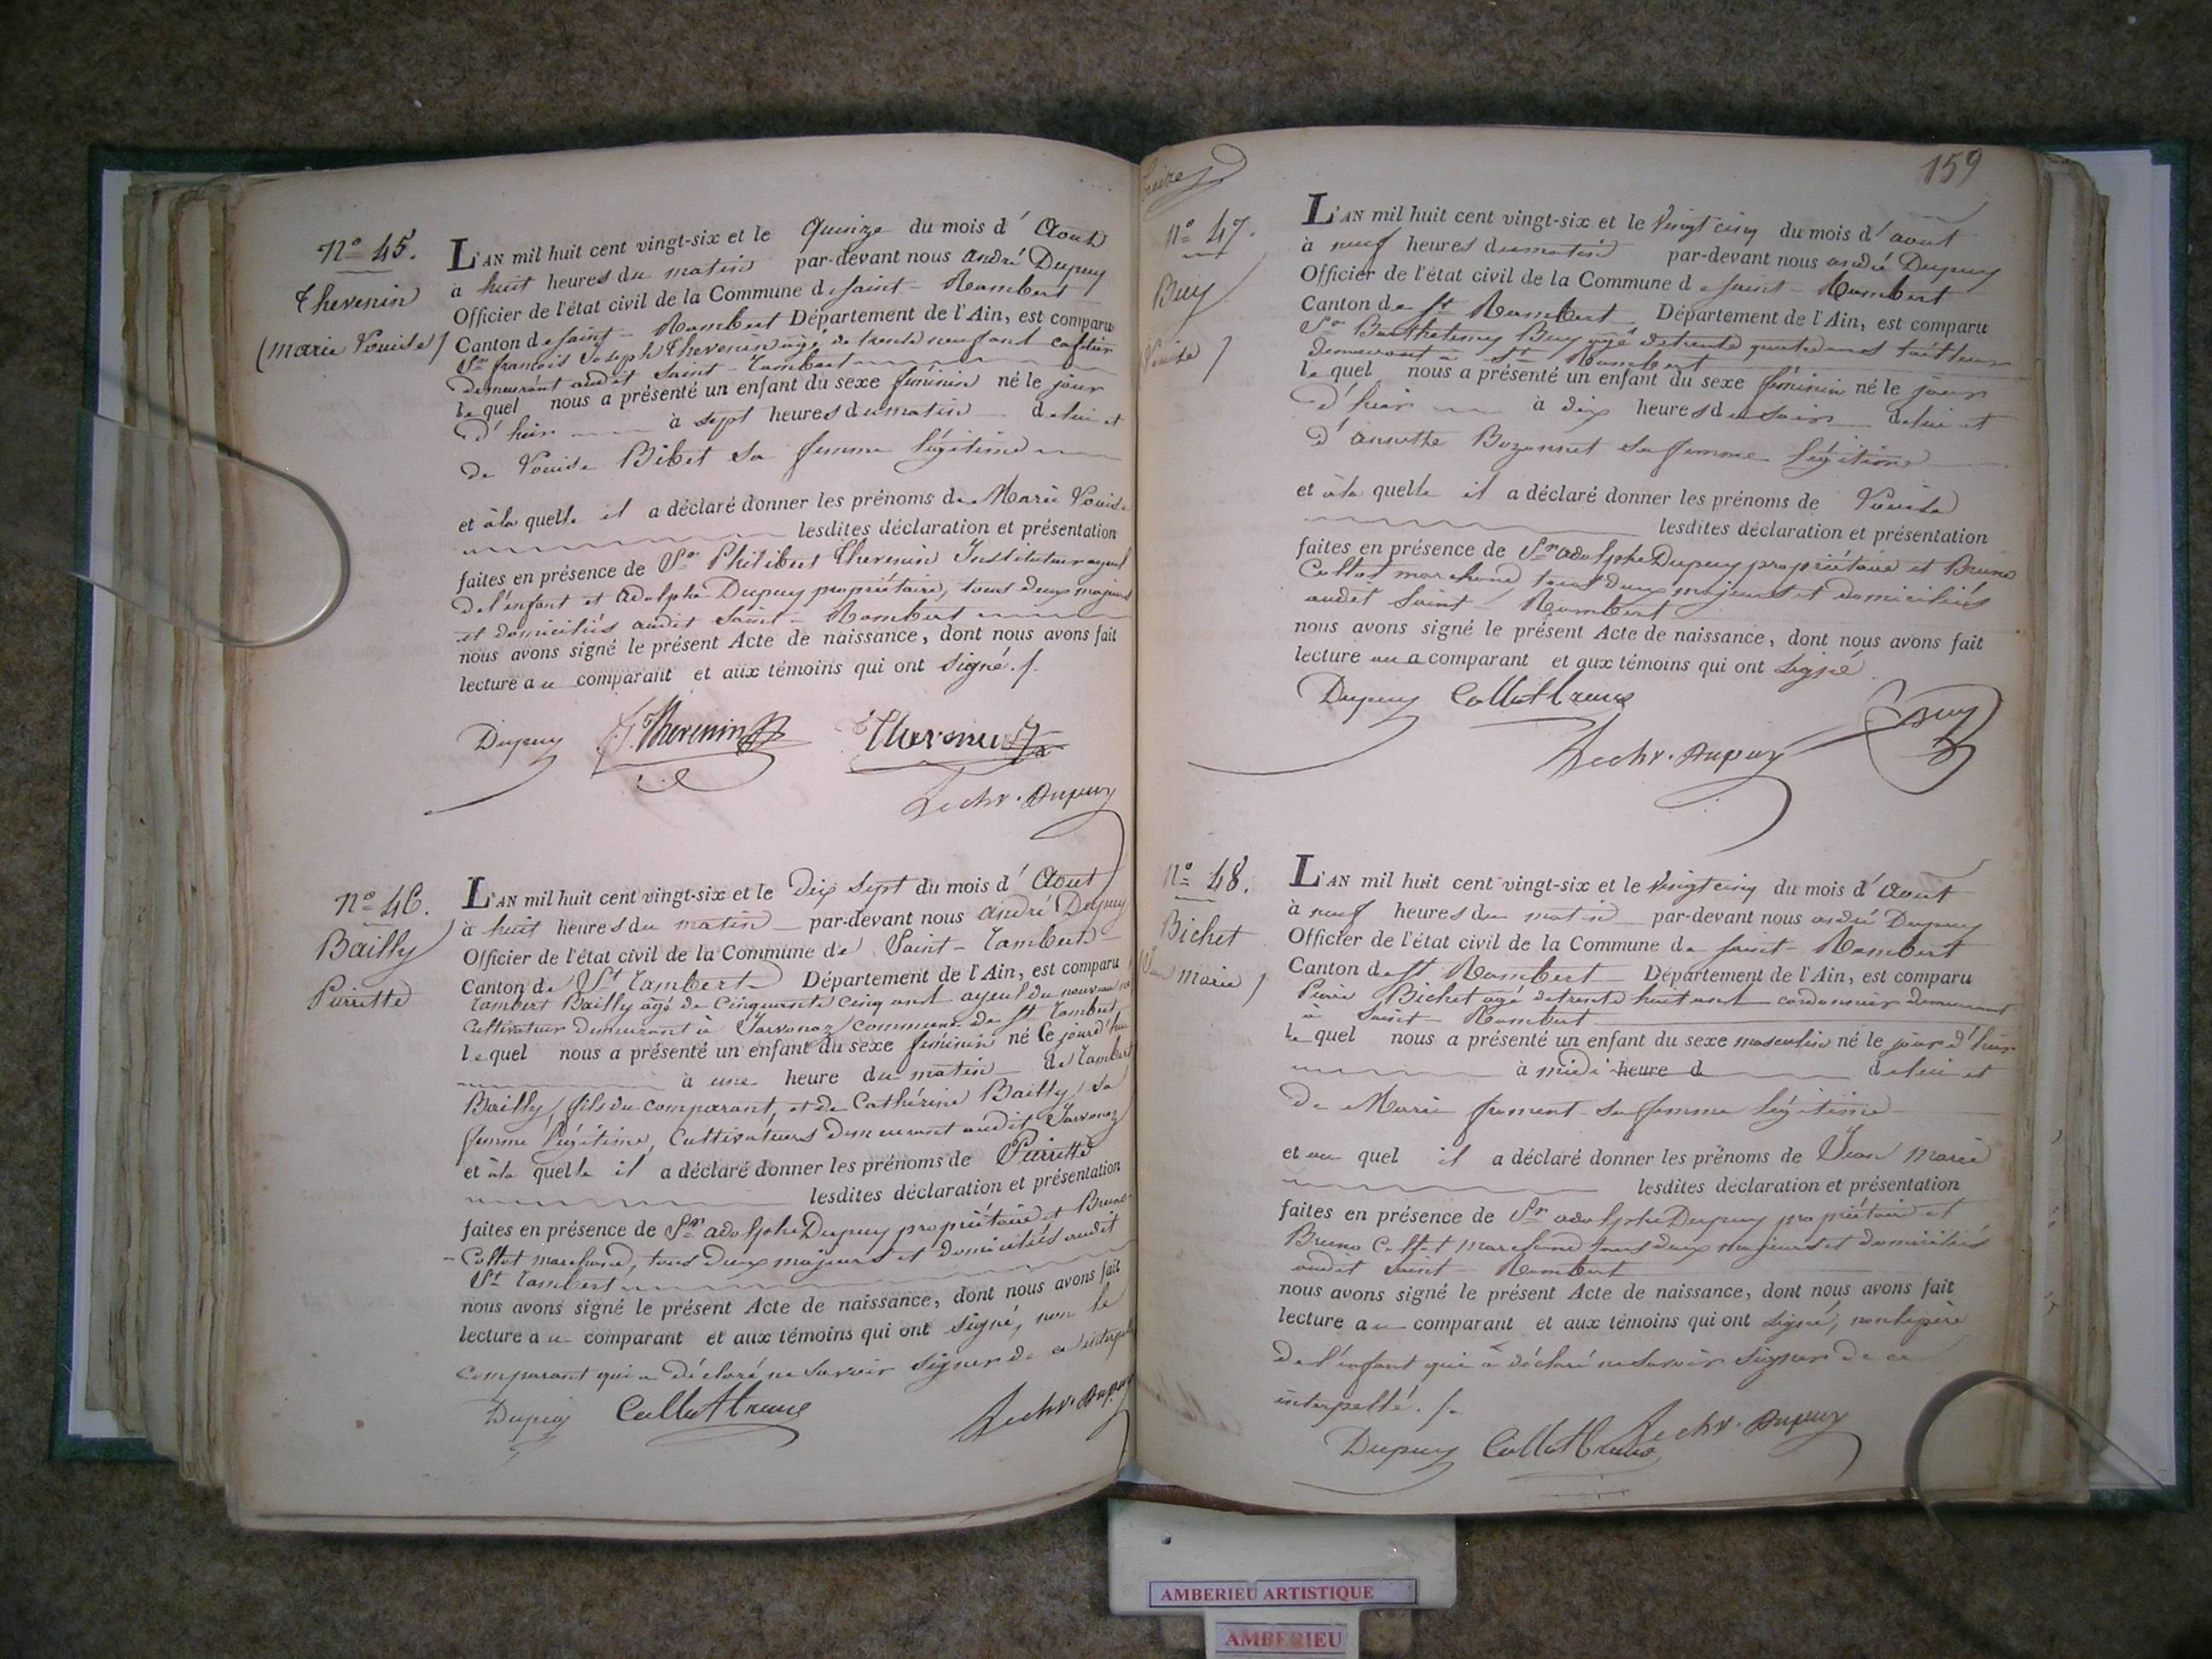 N° 45.
Thevenin
(Marie Louise)
L'AN mil huit cent vingt-six et le Quinze du mois d'Aout
à huit heures du matin par-devant nous André Dupuy
Officier de l'état civil de la Commune de Saint-Rambert
Canton de Saint-Rambert Département de l'Ain, est comparu
Sr françois Joseph Thevenin âgé de trente neuf ans caffetier
demeurant audit Saint-Rambert
lequel nous a présenté un enfant du sexe féminin né le jour
d'hier à sept heures du matin de lui et
de Louise Bibet sa femme légitime
et à la quelle il a déclaré donner les prénoms de Marie Louise
lesdites déclaration et présentation
faites en présence de Sr Philibert Thevenin Instituteur ayeul
de l'enfant et Adolphe Dupuy propriétaire, tous deux majeurs
et domiciliés audit Saint-Rambert
nous avons signé le présent Acte de naissance, dont nous avons fait
lecture au comparant et aux témoins qui ont signé./.
Dupuy Thevenin Thevenin
Dupuy
N° 46.
Bailly
Pierrette
L'AN mil huit cent vingt-six et le Dix Sept du mois d'Aout
à huit heures du matin par-devant nous André Dupuy
Officier de l'état civil de la Commune de Saint-Rambert
Canton de St Rambert Département de l'Ain, est comparu
Rambert Bailly âgé de Cinquante cinq ans ayeul du nouveau né
Cultivateur demeurant à Javornoz commune de St Rambert
lequel nous a présenté un enfant du sexe féminin né le jour d'hui
à une heure du matin de Rambert
Bailly, fils du comparant, et de Cathérine Bailly, sa
femme légitime, Cultivateurs demeurant audit Javornoz
et à la quelle il a déclaré donner les prénoms de Pierrette
lesdites déclaration et présentation
faites en présence de Sr adolphe Dupuy propriétaire et Bruno
Collot marchand, tous deux majeurs et domiciliés audit
St Rambert
nous avons signé le présent Acte de naissance, dont nous avons fait
lecture au comparant et aux témoins qui ont signé, non le
comparant qui a déclaré ne savoir signer de ce interpellé
Dupuy Collot Bruno Dupuy
159
N° 47.
Buy
Louise
L'AN mil huit cent vingt-six et le Vingt cinq du mois d'aout
à neuf heures du matin par-devant nous andré Dupuy
Officier de l'état civil de la Commune de Saint-Rambert
Canton de St Rambert Département de l'Ain, est comparu
Sr Barthelemy Buy agé de trente quatre ans tailleur
demeurant à St Rambert
lequel nous a présenté un enfant du sexe féminin né le jour
d'hier à dix heures du soir de lui et
d'annette Bozonnet sa femme légitime
et à la quelle il a déclaré donner les prénoms de Louise
lesdites déclaration et présentation
faites en présence de Sr adolphe Dupuy propriétaire et Bruno
Collot marchand, tous deux majeurs et domiciliés
audit Saint-Rambert
nous avons signé le présent Acte de naissance, dont nous avons fait
lecture au comparant et aux témoins qui ont signé
Dupuy Collot Bruno Buy
Dupuy
N° 48.
Bichet
Jean Marie
L'AN mil huit cent vingt-six et le Vingt cinq du mois d'aout
à neuf heures du matin par-devant nous andré Dupuy
Officier de l'état civil de la Commune de Saint-Rambert
Canton de St Rambert Département de l'Ain, est comparu
Pierre Bichet agé de trente huit ans cordonnier demeurant
à Saint-Rambert
lequel nous a présenté un enfant du sexe masculin né le jour d'hier
à midi heure d de lui et
de Marie froment sa femme légitime
et au quel il a déclaré donner les prénoms de Jean Marie
lesdites déclaration et présentation
faites en présence de Sr adolphe Dupuy propriétaire et
Bruno Collot marchand tous deux majeurs et domiciliés
audit Saint-Rambert
nous avons signé le présent Acte de naissance, dont nous avons fait
lecture au comparant et aux témoins qui ont signé, non le père
de l'enfant qui a déclaré ne savoir signer de ce
interpellé./.
Dupuy Collot Bruno Dupuy
AMBERIEU ARTISTIQUE
AMBERIEU